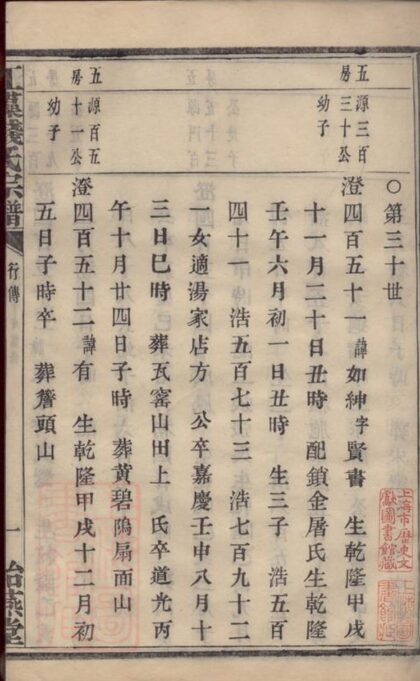 五源三百
房三十公
幼子
五源百五
房十一公
幼子
○第三十世
澄四百五十一 諱如紳字賢書 生乾隆甲戌
十一月二十日丑時 配鎖金屠氏生乾隆
壬午六月初一日丑時 生三子 浩五百
四十一 浩五百七十三 浩七百九十二
一女適湯家店方 公卒嘉慶壬申八月十
三日巳時 葬瓦窰山田上 氏卒道光丙
午十月廿四日子時 葬黃碧隝扇面山
澄四百五十二 諱有 生乾隆甲戌十二月初
五日子時卒 葬簷頭山
錢氏宗譜
行傳
一
燕堂
上海市歷史文
獻圖書館藏